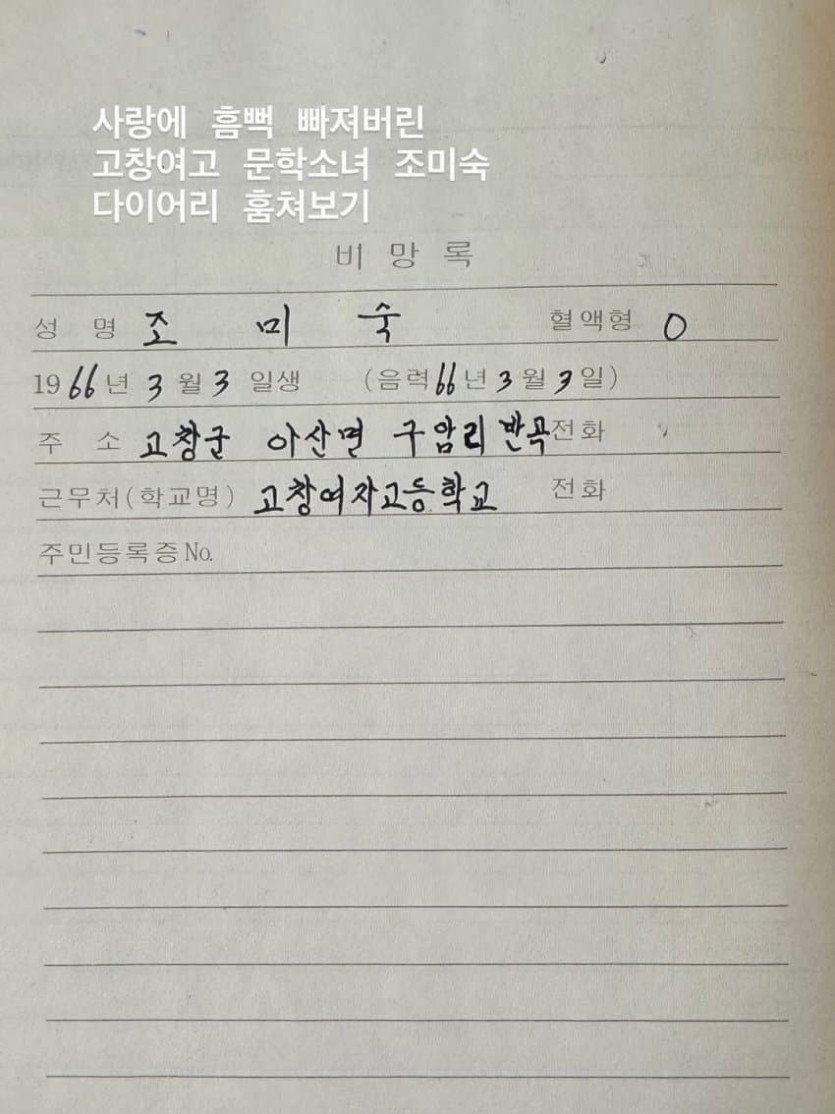 사랑에 흠뻑 빠져버린
고창여고 문학소녀 조미숙
다이어리 훔쳐보기
비 망 록
성 명 조 미 숙 혈액형 O
1966년 3월 3일생 (음력66년 3월 3일)
주 소 고창군 아산면 구암리 반곡 전화
근무처(학교명) 고창여자고등학교 전화
주민등록증No.